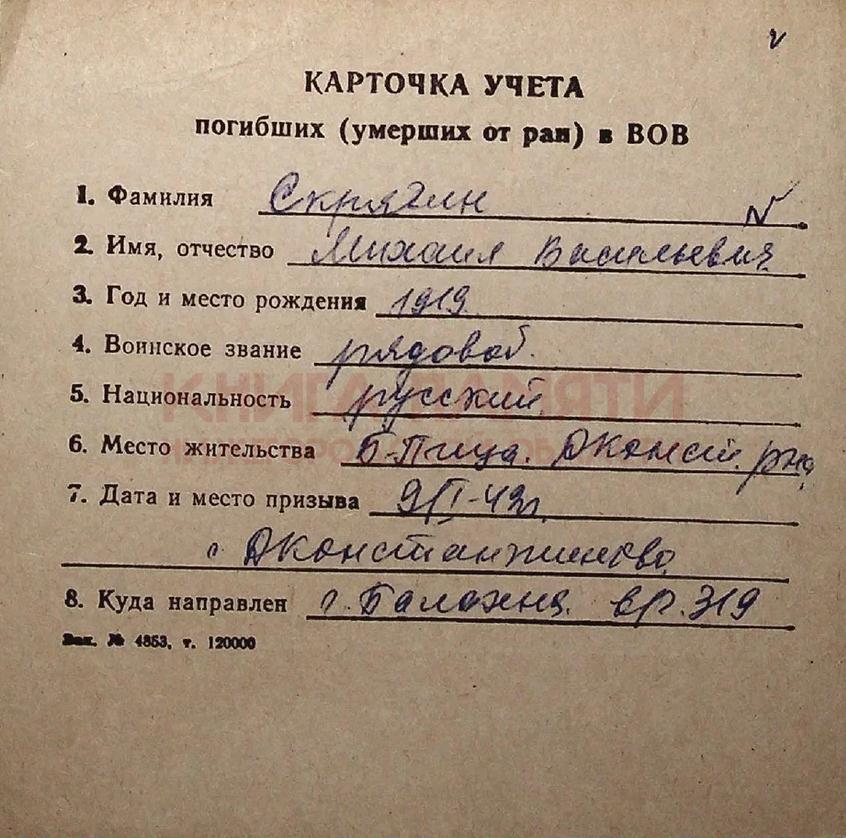 КАРТОЧКА УЧЕТА
погибших (умерших от ран) в ВОВ
1. Фамилия Скрягин
2. Имя, отчество Михаил Васильевич
3. Год и место рождения 1919
4. Воинское звание рядовой.
5. Национальность русский
КНИГА ПАМЯТИ
6. Место жительства Б-Пица. Дконст. рна
7. Дата и место призыва 9/I-42г.
с Дконстантиново
8. Куда направлен г. Балахна. вр. 319
Зак. № 4853, т. 120000